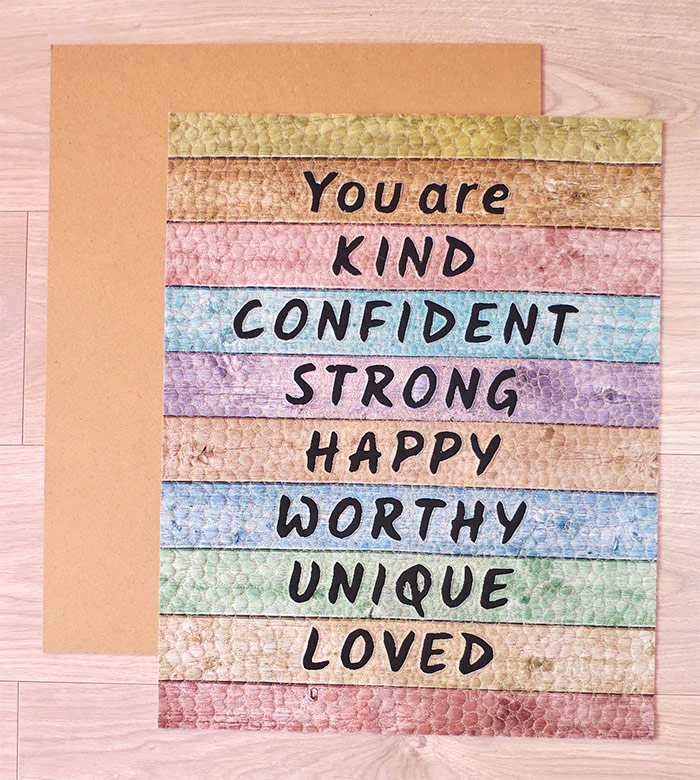 You are
KIND
CONFIDENT
STRONG
HAPPY
WORTHY
UNIQUE
LOVED